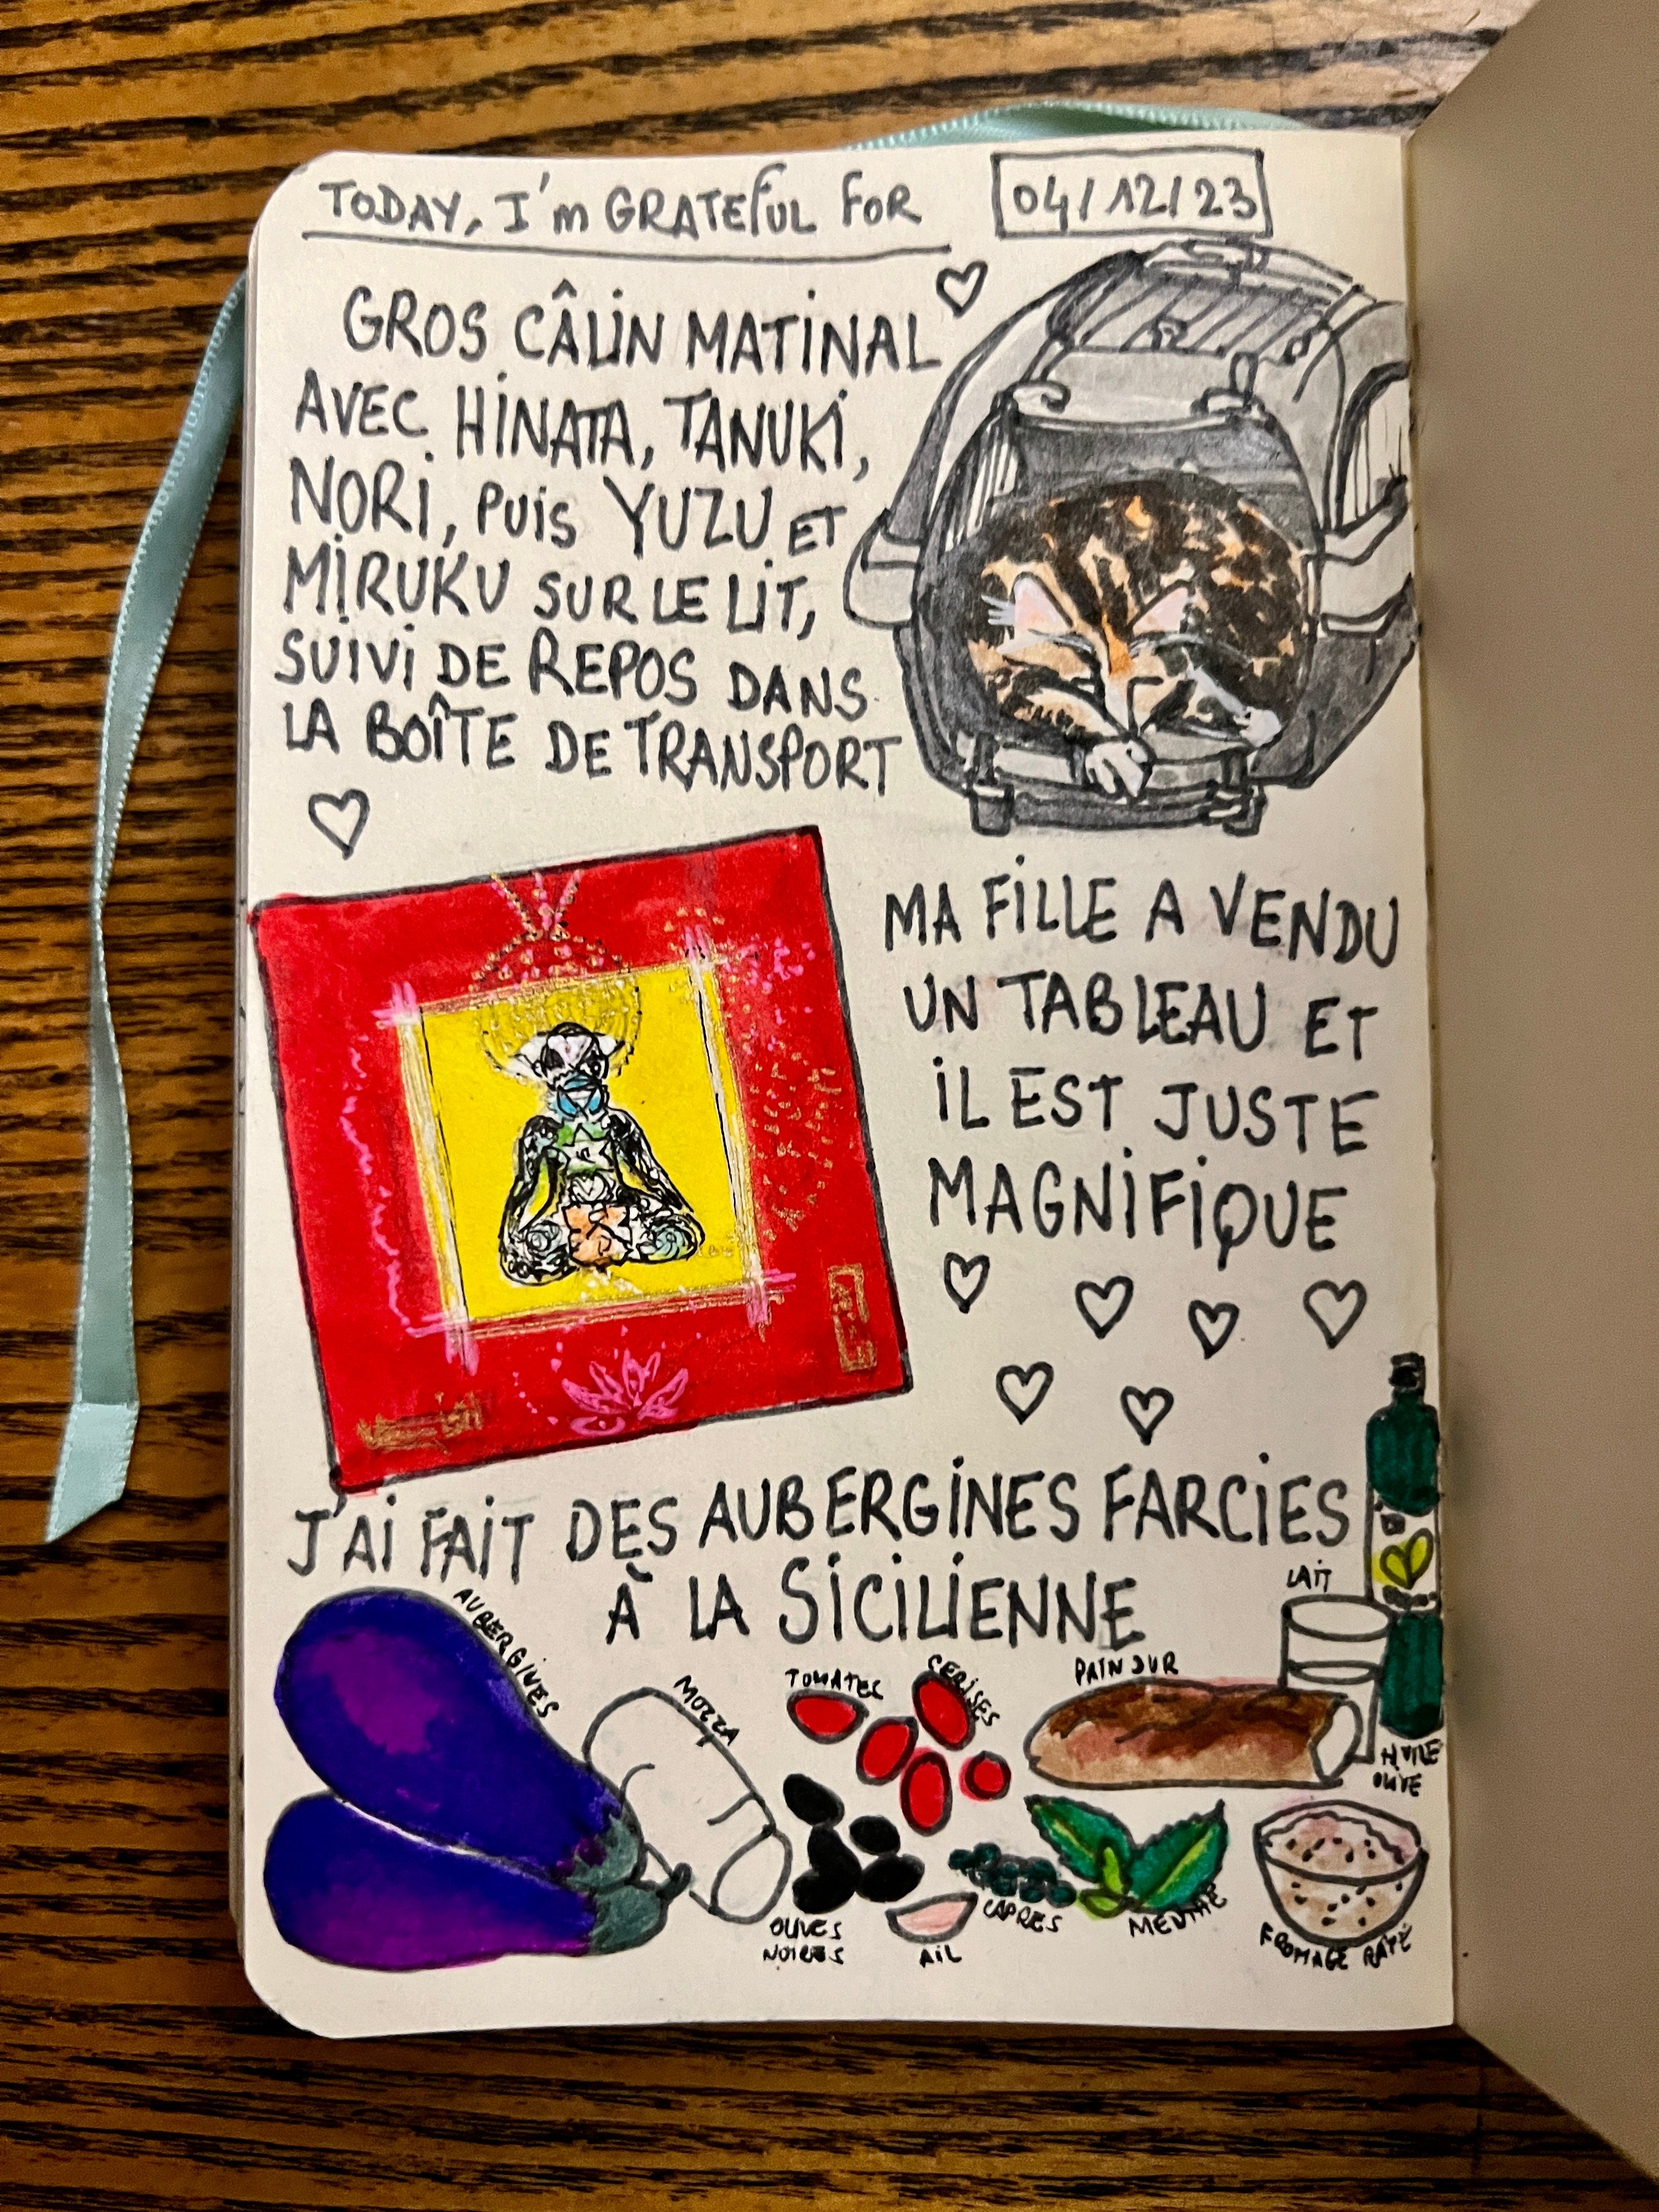 TODAY, I'm GRATEFUL FOR 04/12/23
GROS CÂLIN MATINAL
AVEC HINATA, TANUKI,
NORI, PUIS YUZU ET
MIRUKU SUR LE LIT,
SUIVI DE REPOS DANS
LA BOÎTE DE TRANSPORT
MA FILLE A VENDU
UN TABLEAU ET
IL EST JUSTE
MAGNIFIQUE
J'AI FAIT DES AUBERGINES FARCIES
À LA SICILIENNE
AUBERGINES
MOZZA
TOMATES
CERISES
PAIN DUR
LAIT
HUILE
OLIVE
OLIVES
NOIRES
AIL
CAPRES
MENTHE
FROMAGE RÂPÉ